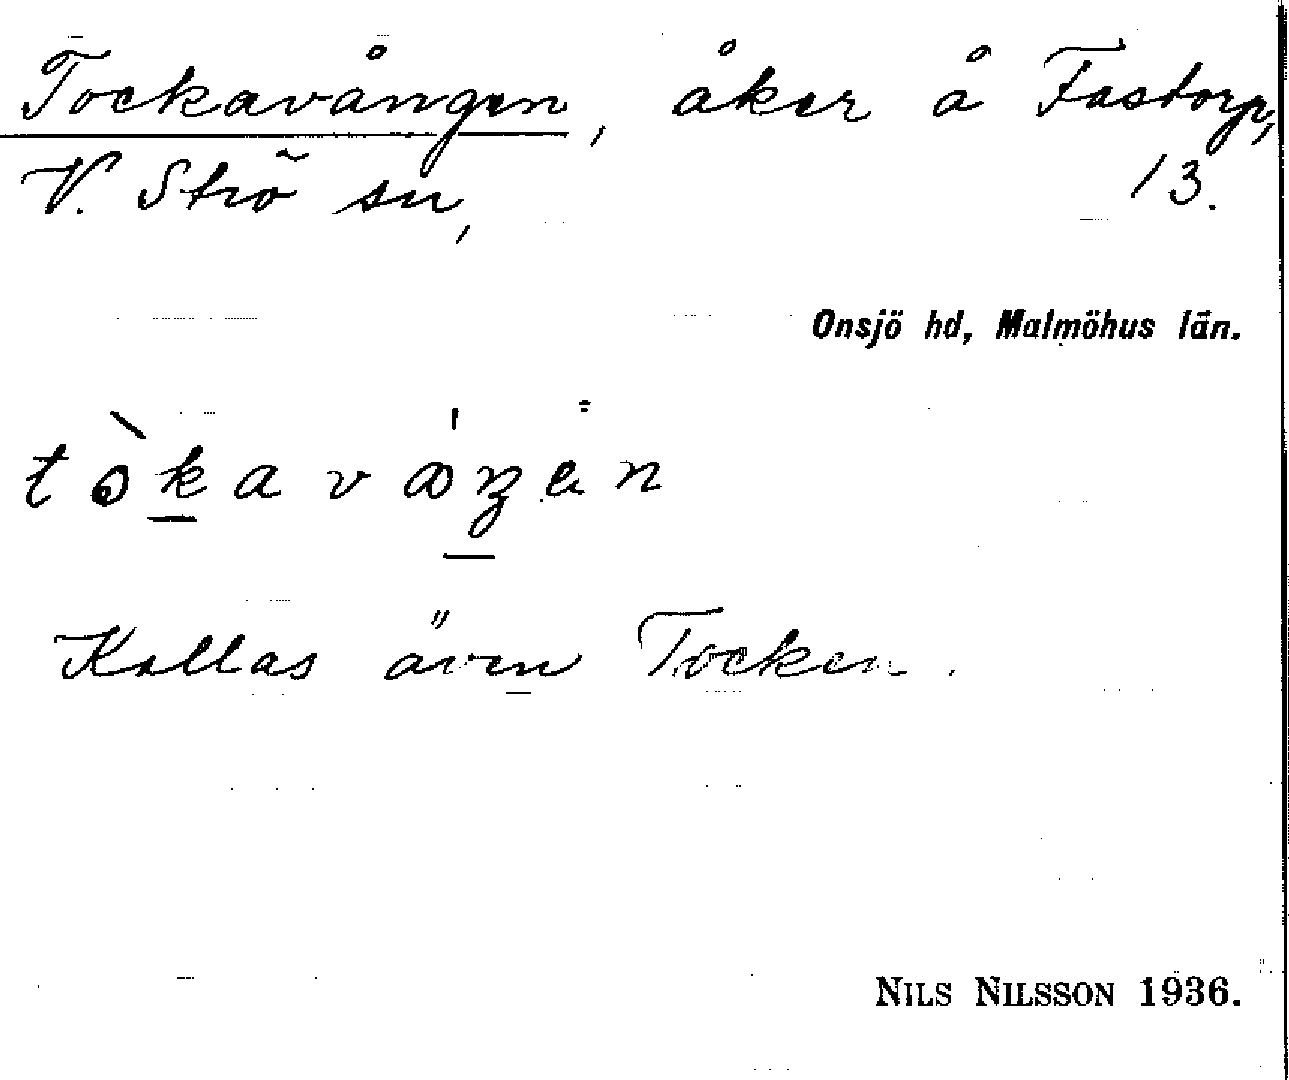 Tockavången, åker å Fastorp,
V. Strö sn, 13.
Onsjö hd, Malmöhus län.
Kallas även Tocken.
NILS NILSSON 1936.